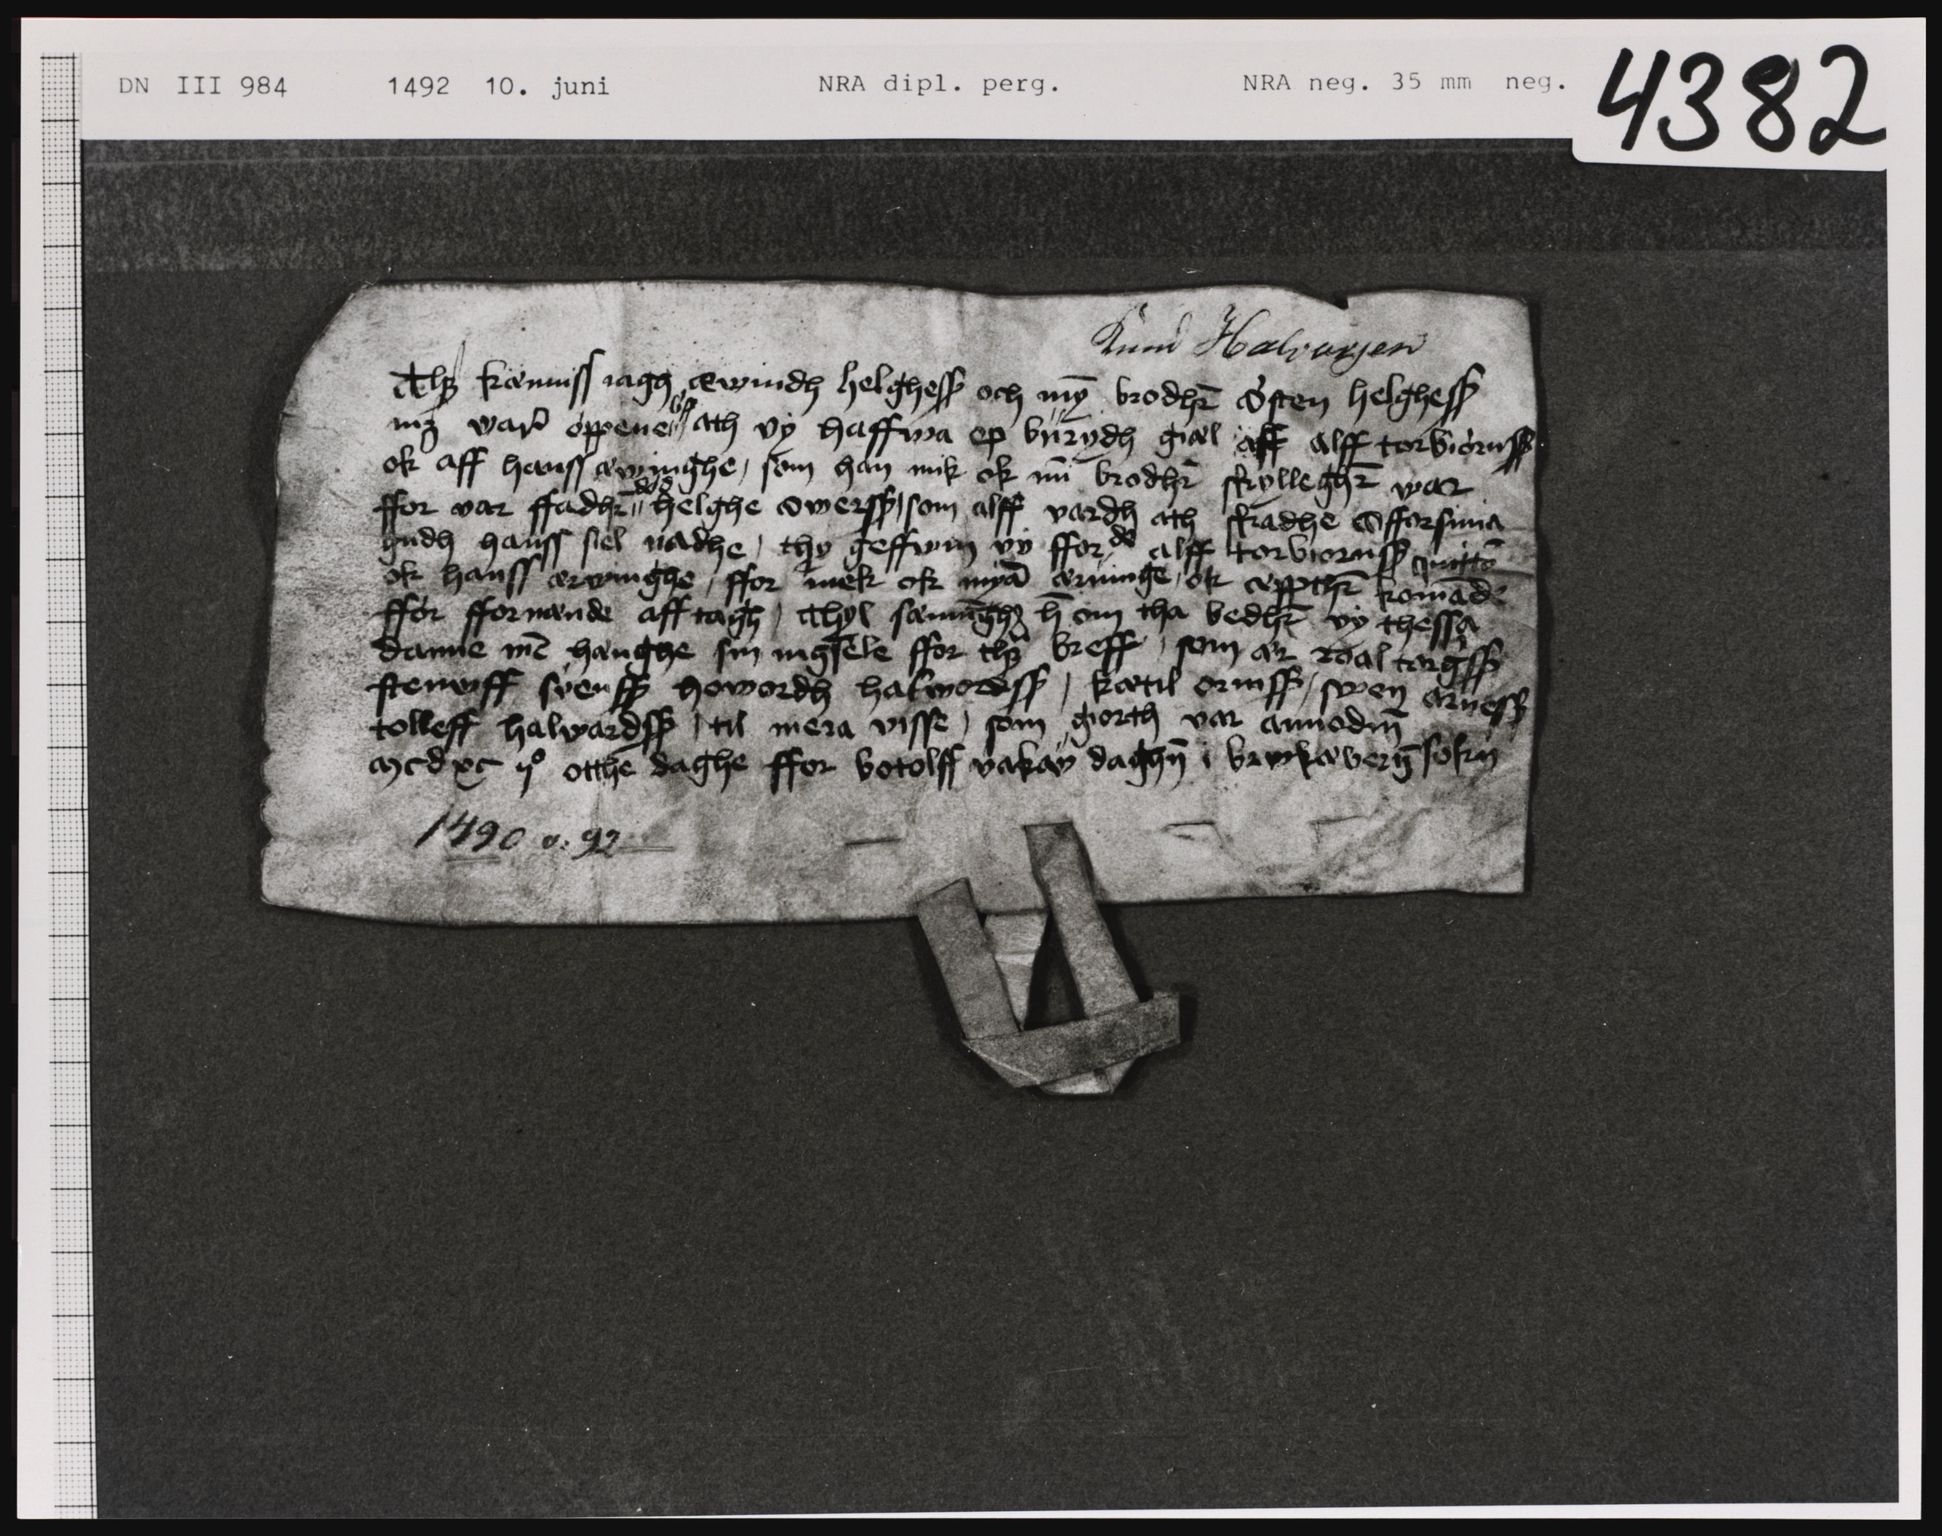 DN III 984 1492 10. juni NRA dipl. perg. NRA neg. 35 mm neg. 4382
Knud Halvorsen
Thꝫ kænniss iagh æwindh helghessꝭ och mỹ brodhr̄ østen helghessꝭ
mꝫ warͥ oppene brͤff ath vÿ haffwa ep burÿdh giæl aff alff torbiørnssꝭ
ok aff hanss ærwinghe, som han mik ok mī brodhr̄ skylleghr̄ war
ffor var ffadhr̄ dødh helghe owerssꝭ, som alff vardh ath skadhe offorsinia
gudh hanss siel nadhe, thy geffwm vÿ ffor de alff torbiornssꝭ quittō
ok hanss ærwinghe, ffor mek ok mynā ærwinge, ok æpptr̄ komāde
ffor ffornænde aff tagh, Thyl sannīghꝫ h̄ om tha bedhr̄ vÿ thessa
danne mē hænghe sin ingsēle ffor thꝫ breff, som ær roal targssꝭ
stenulff suenssꝭ howordh halwordssꝭ, kætil ormssꝭ, swen arnessꝭ
tolleff halwardssꝭ, til mera visse, som giorth var annodm̄
mcdxc ijͦ otthe daghe ffor botolff vakaw daghn̄ i brwkæberḡ sokn
1490 o. 92